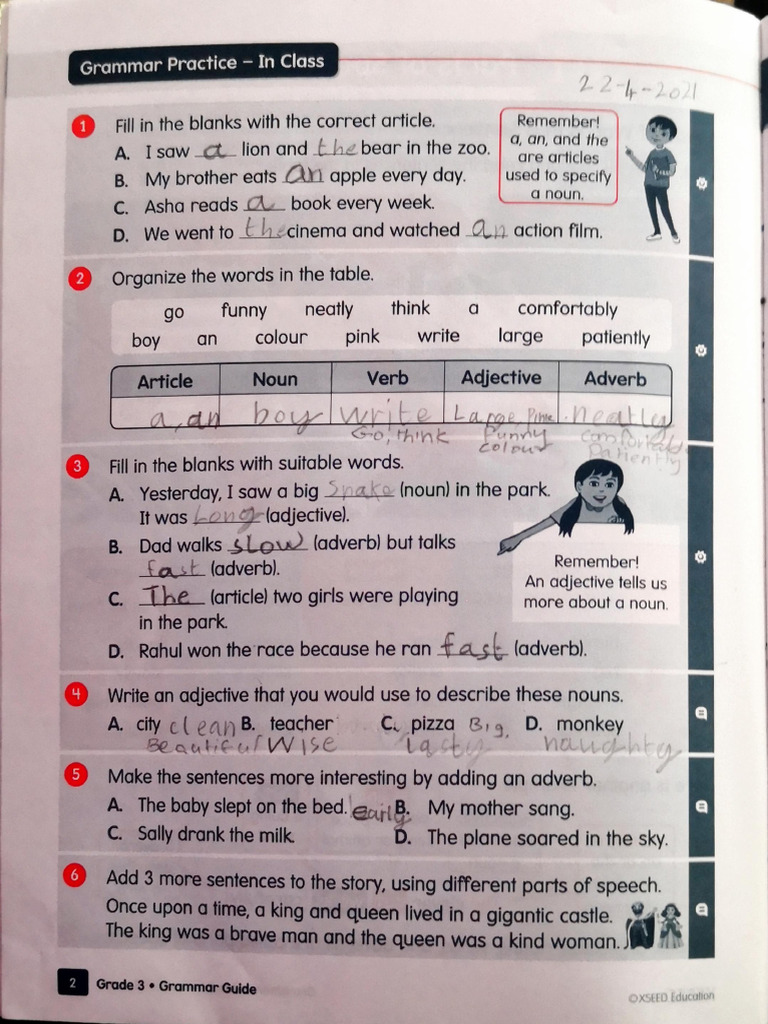 Grammar Practice – In Class
22-4-2021
1 Fill in the blanks with the correct article.
A. I saw a lion and the bear in the zoo.
B. My brother eats an apple every day.
C. Asha reads a book every week.
D. We went to the cinema and watched an action film.
Remember!
a, an, and the
are articles
used to specify
a noun.
2 Organize the words in the table.
go funny neatly think a comfortably
boy an colour pink write large patiently
Article Noun Verb Adjective Adverb
a, an boy write Large, Pink neatly
Go, think Funny
colour
Patiently
3 Fill in the blanks with suitable words.
A. Yesterday, I saw a big Snake (noun) in the park.
It was Long (adjective).
B. Dad walks slow (adverb) but talks
fast (adverb).
C. The (article) two girls were playing
in the park.
D. Rahul won the race because he ran fast (adverb).
Remember!
An adjective tells us
more about a noun.
4 Write an adjective that you would use to describe these nouns.
A. city clean B. teacher C. pizza Big, D. monkey
Beautiful Wise Tasty naughty
5 Make the sentences more interesting by adding an adverb.
A. The baby slept on the bed. early B. My mother sang.
C. Sally drank the milk. D. The plane soared in the sky.
6 Add 3 more sentences to the story, using different parts of speech.
Once upon a time, a king and queen lived in a gigantic castle.
The king was a brave man and the queen was a kind woman.
2 Grade 3 • Grammar Guide
©XSEED Education